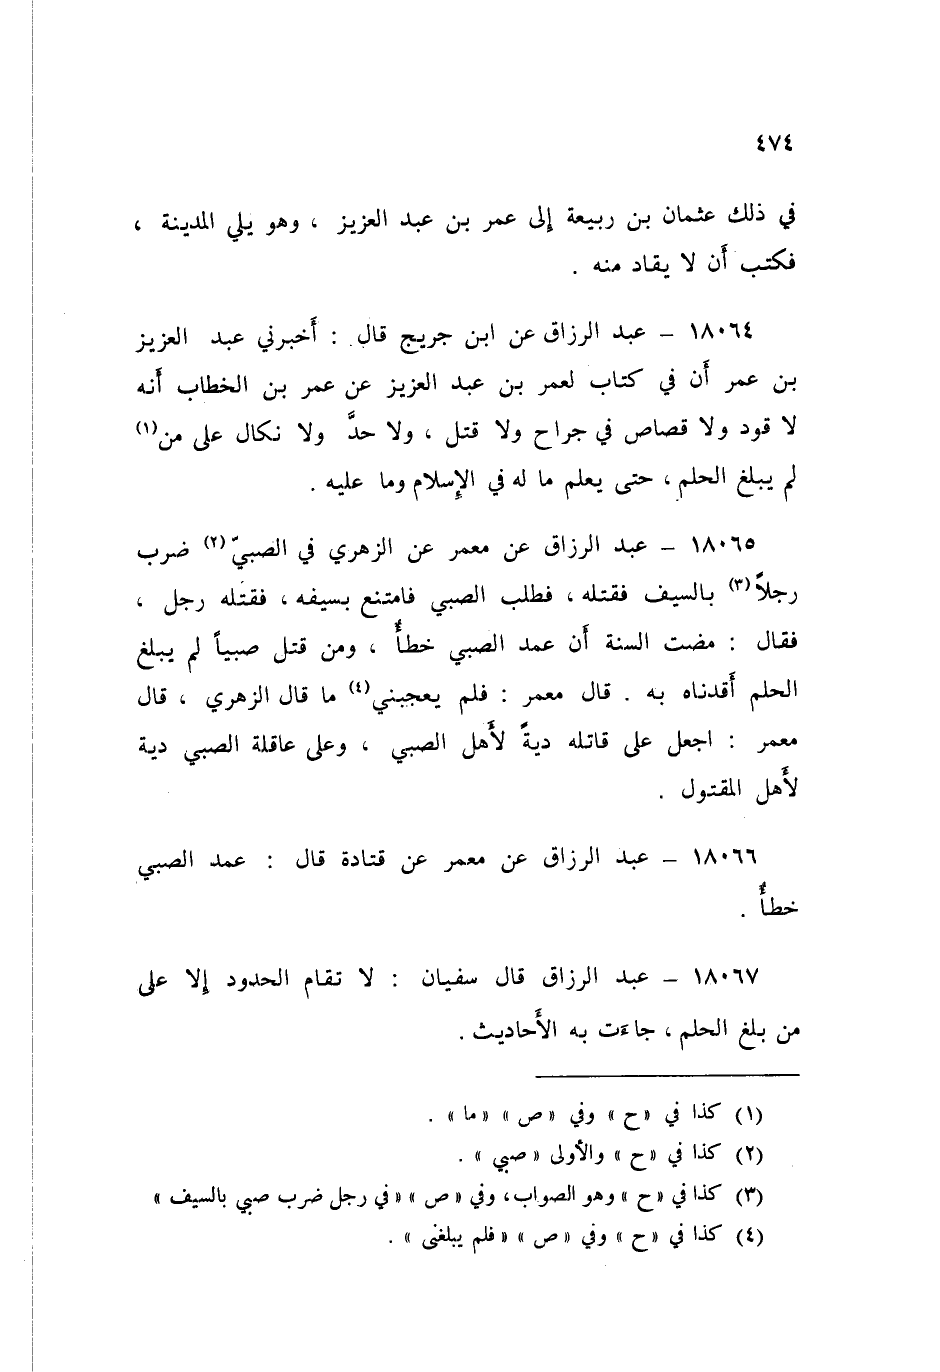 ٤٧٤
في ذلك عثمان بن ربيعة إلى عمر بن عبد العزيز ، وهو يلي المدينة ،
فكتب أن لا يقاد منه .
١٨٠٦٤ – عبد الرزاق عن ابن جريج قال : أخبرني عبد العزيز
بن عمر أن في كتاب لعمر بن عبد العزيز عن عمر بن الخطاب أنه
لا قود ولا قصاص في جراح ولا قتل ، ولا حدَّ ولا نكال على من(١)
لم يبلغ الحلم ، حتى يعلم ما له في الإسلام وما عليه .
١٨٠٦٥ – عبد الرزاق عن معمر عن الزهري في الصبيّ(٢) ضرب
رجلاً(٣) بالسيف فقتله ، فطلب الصبي فامتنع بسيفه ، فقتله رجل ،
فقال : مضت السنة أن عمد الصبي خطأٌ ، ومن قتل صبياً لم يبلغ
الحلم أقدناه به . قال معمر : فلم يعجبني(٤) ما قال الزهري ، قال
معمر : اجعل على قاتله ديةً لأهل الصبي ، وعلى عاقلة الصبي دية
لأهل المقتول .
١٨٠٦٦ – عبد الرزاق عن معمر عن قتادة قال : عمد الصبي
خطأٌ .
١٨٠٦٧ – عبد الرزاق قال سفيان : لا تقام الحدود إلا على
من بلغ الحلم ، جاءت به الأحاديث .
(١) كذا في «ح» وفي «ص» «ما» .
(٢) كذا في «ح» والأولى «صبي» .
(٣) كذا في «ح» وهو الصواب، وفي «ص» «في رجل ضرب صبي بالسيف»
(٤) كذا في «ح» وفي «ص» «فلم يبلغنى» .